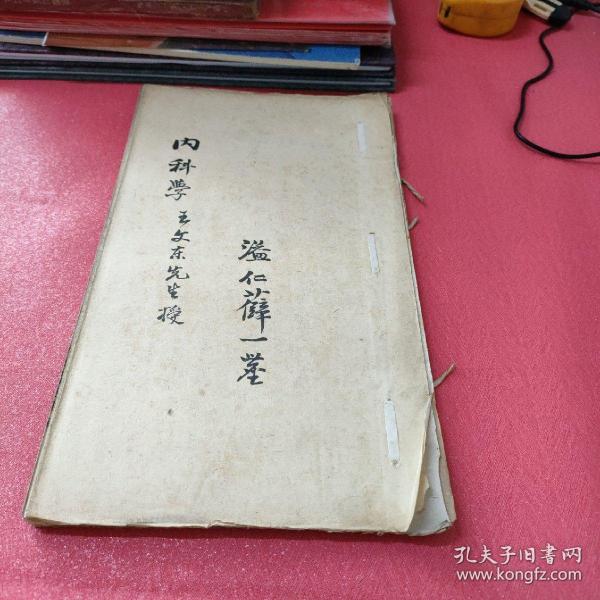 溢仁薛一
内科學 王文东先生授
孔夫子旧書网
www.kongfz.com